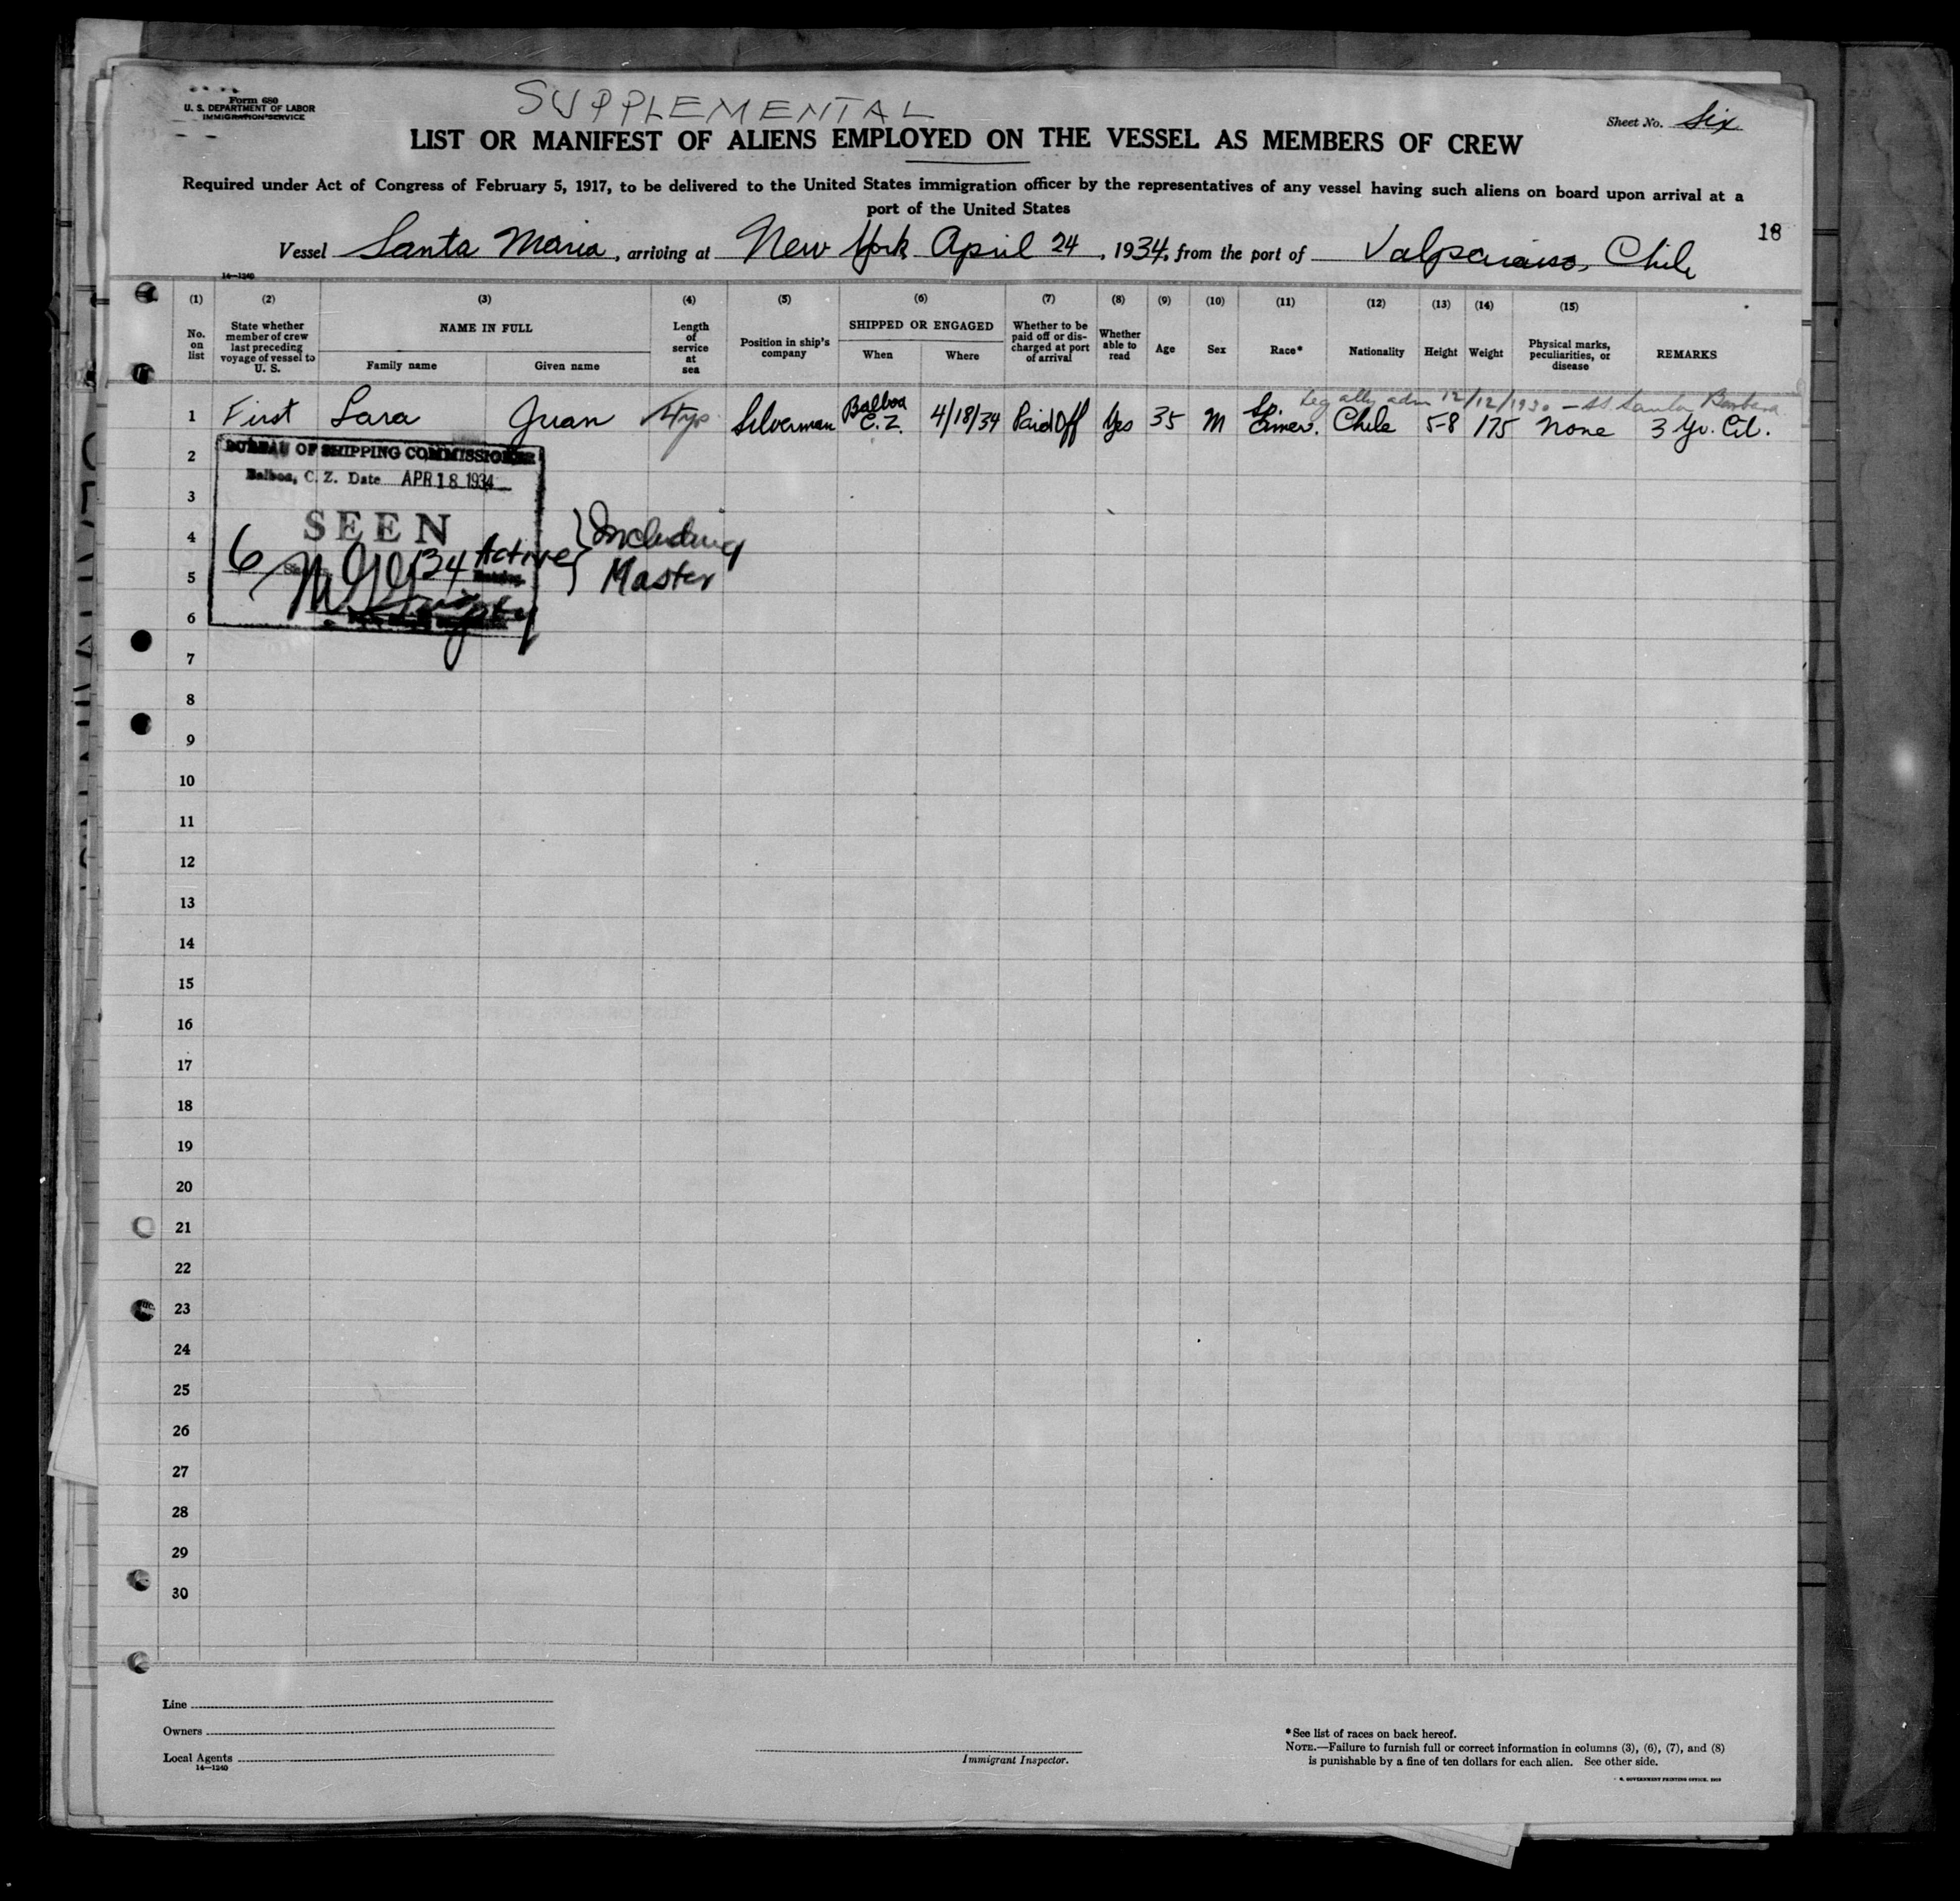 Form 680
U. S. DEPARTMENT OF LABOR
IMMIGRATION SERVICE
SUPPLEMENTAL
Sheet No. Six
LIST OR MANIFEST OF ALIENS EMPLOYED ON THE VESSEL AS MEMBERS OF CREW
Required under Act of Congress of February 5, 1917, to be delivered to the United States immigration officer by the representatives of any vessel having such aliens on board upon arrival at a
port of the United States
18
Vessel Santa Maria, arriving at New York April 24, 1934, from the port of Valparaiso, Chile
14—1240
(1) (2) (3) (4) (5) (6) (7) (8) (9) (10) (11) (12) (13) (14) (15)
No. on list
State whether member of crew last preceding voyage of vessel to U. S.
NAME IN FULL
Family name
Given name
Length of service at sea
Position in ship's company
SHIPPED OR ENGAGED
When
Where
Whether to be paid off or discharged at port of arrival
Whether able to read
Age
Sex
Race*
Nationality
Height
Weight
Physical marks, peculiarities, or disease
REMARKS
Legally adm 12/12/1930 — SS. Santa Barbara
1 First Lara Juan 4 yrs Silverman Balboa C. Z. 4/18/34 Paid Off Yes 35 M Sp. Amer. Chile 5-8 175 None 3 Yr. Cit.
BUREAU OF SHIPPING COMMISSIONER
Balboa, C. Z. Date APR 18 1934
SEEN
6 134 Active } Including
Master
2
3
4
5
6
7
8
9
10
11
12
13
14
15
16
17
18
19
20
21
22
23
24
25
26
27
28
29
30
Line
Owners
Local Agents
14—1240
Immigrant Inspector.
*See list of races on back hereof.
NOTE.—Failure to furnish full or correct information in columns (3), (6), (7), and (8)
is punishable by a fine of ten dollars for each alien. See other side.
GOVERNMENT PRINTING OFFICE